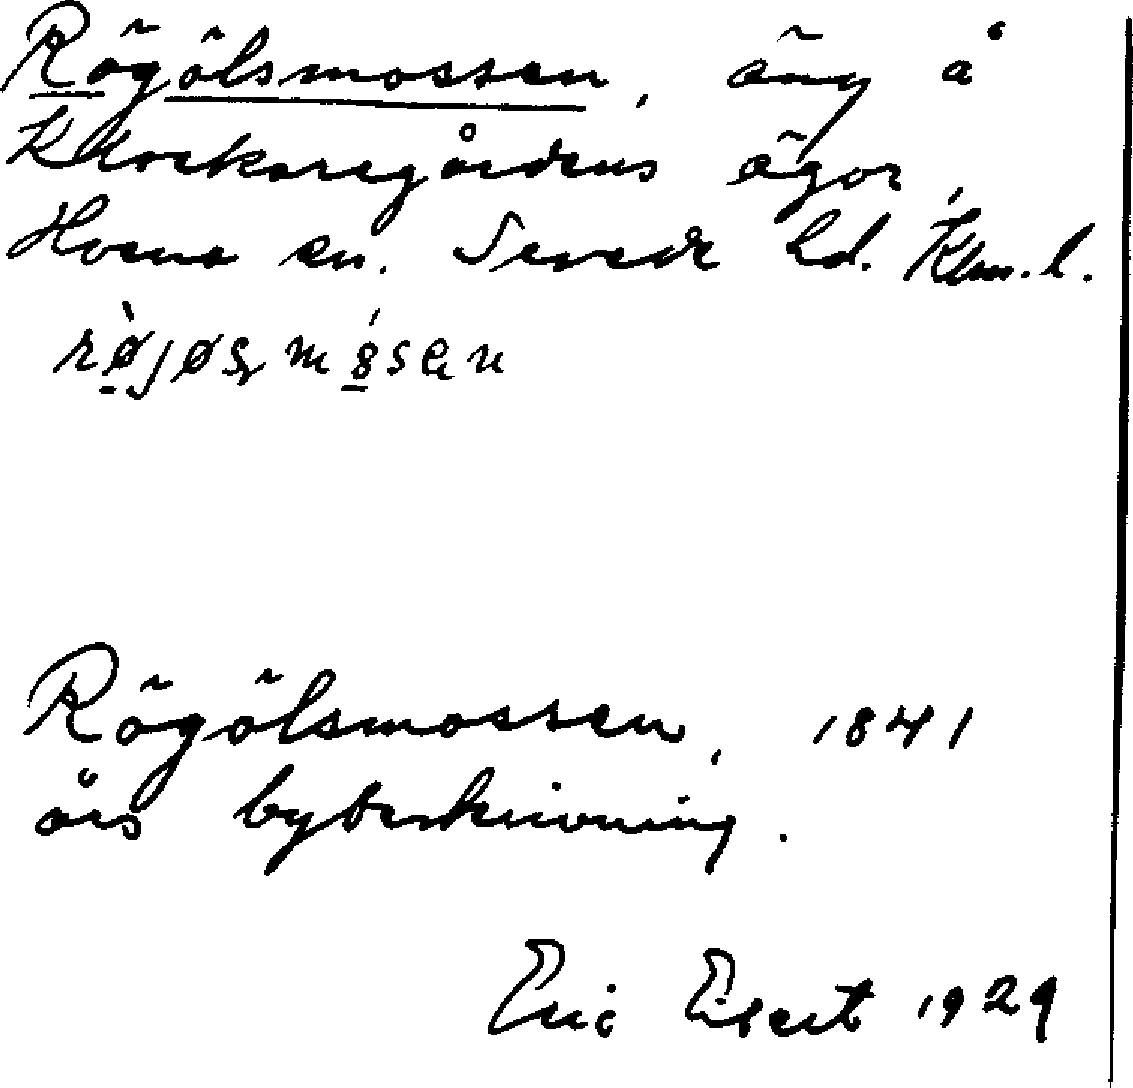 Rögölsmossen, äng å
Klockaregårdens ägor,
Horna sn. Sevede hd. Klm. l.
Rögölsmossen, 1841
års bybeskrivning.
Eric Elgert 1929